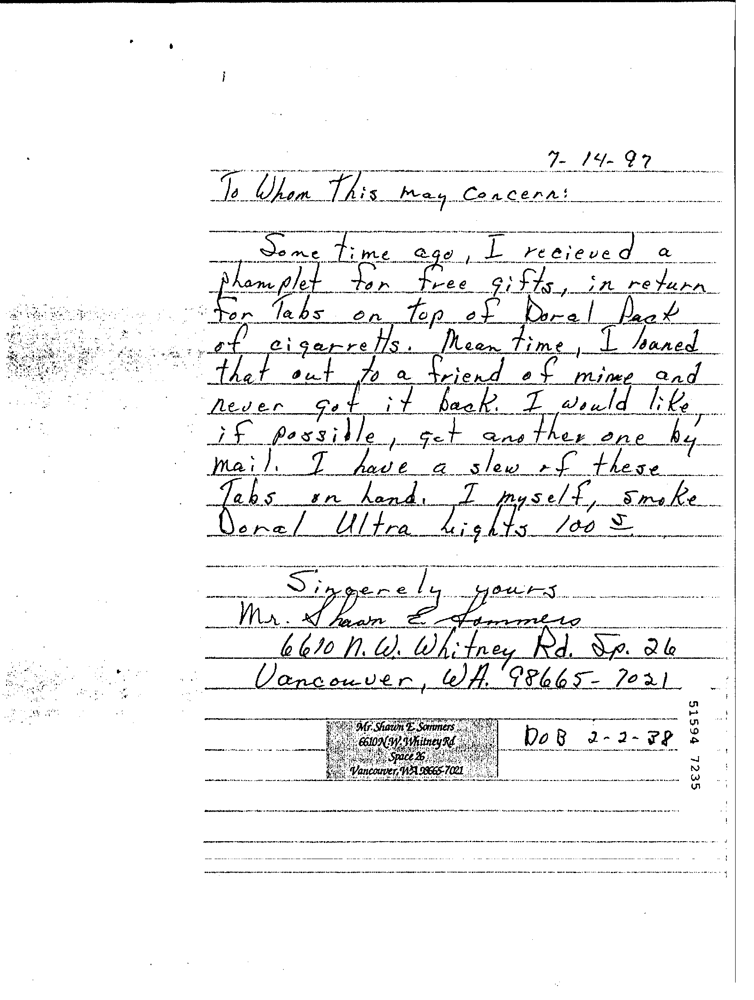 7-14-97
To Whom This may Concern:
Some time ago, I recieved a
phamplet for free gifts, in return
for Tabs on top of Doral Pack
of cigarretts. Mean time, I loaned
that out to a friend of mime and
never got it back. I would like,
if possible, get another one by
mail. I have a slew of these
Tabs on hand. I myself, smoke
Doral Ultra Lights 100s
Singerely yours
Mr. Shawn E Sommers
6610 N.W. Whitney Rd. Sp. 26
Vancouver, WA. 98665-7021
Mr. Shawn E. Sommers
6610 N.W. Whitney Rd
Space 26
Vancouver, WA 98665-7021
DOB 2-2-38
51594 7235